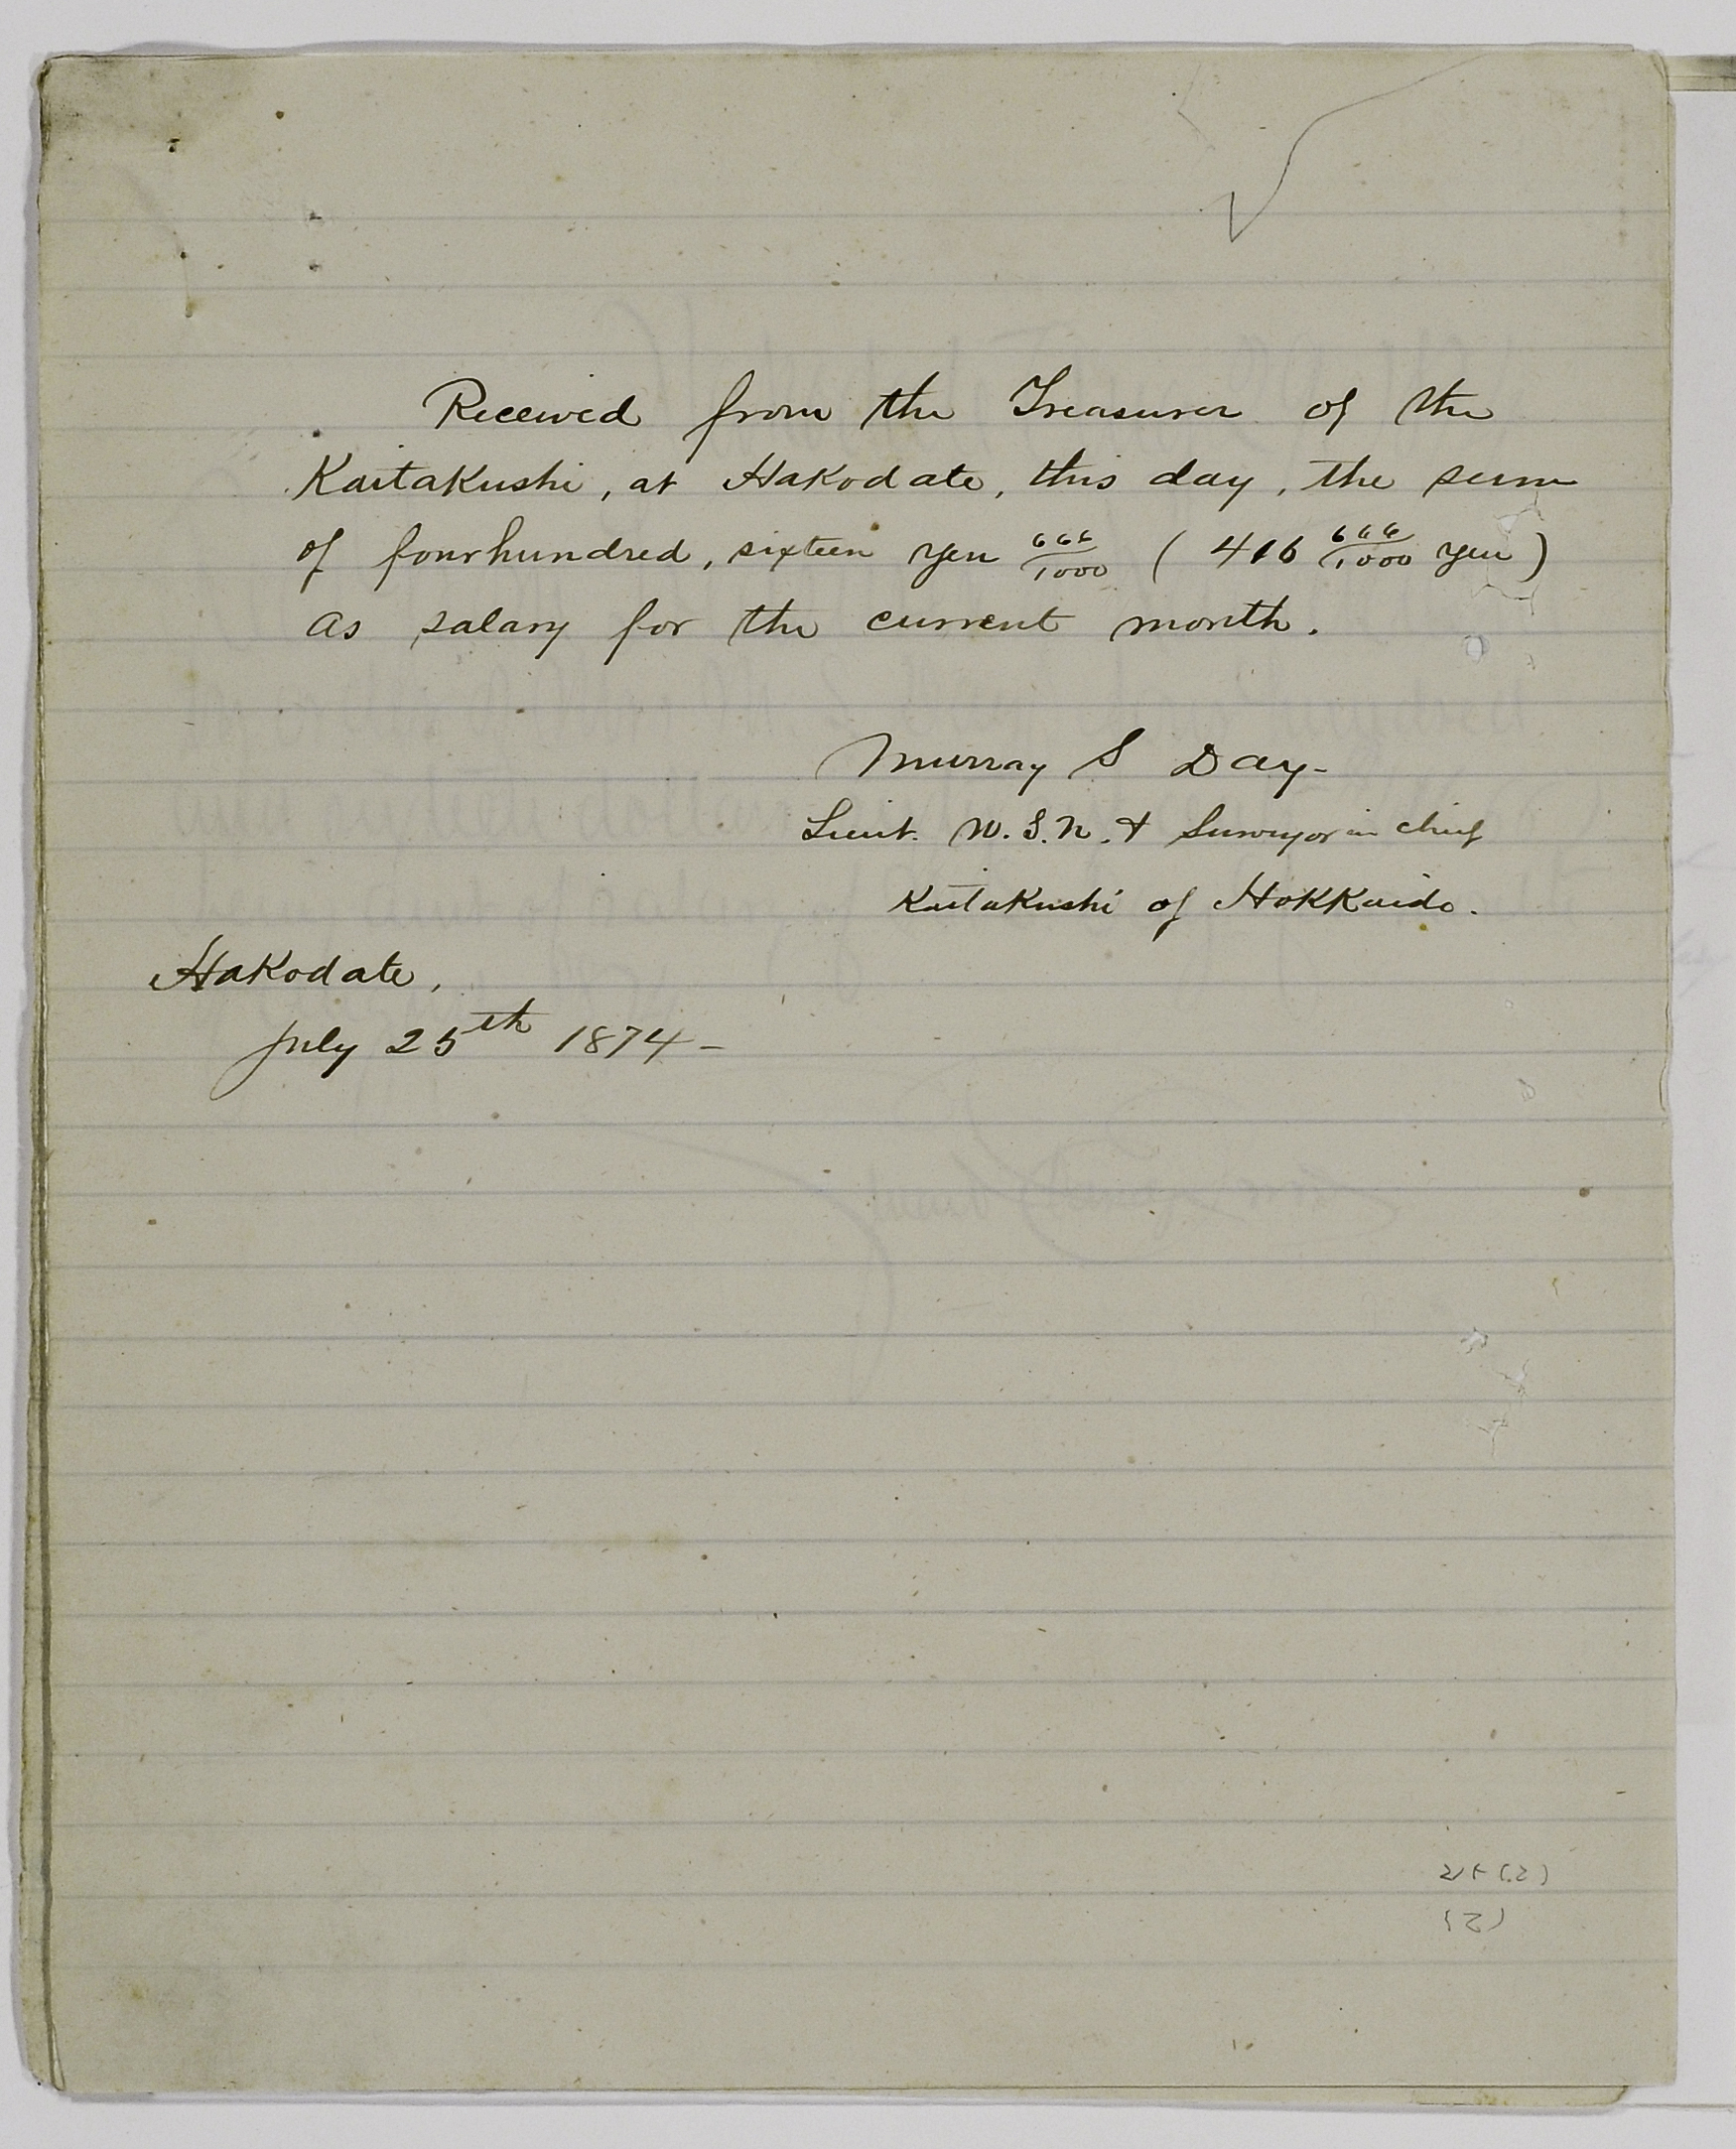 Received from the Treasurer of the
Kaitakushi, at Hakodate, this day, the sum
of fourhundred, sixteen yen 666/1000 ( 416 666/1000 yen )
as salary for the current month.
Murray S Day-
Lieut. U.S.N. & Surveyor in chief
Kaitakushi of Hokkaido.
Hakodate,
July 25th 1874-
(2)